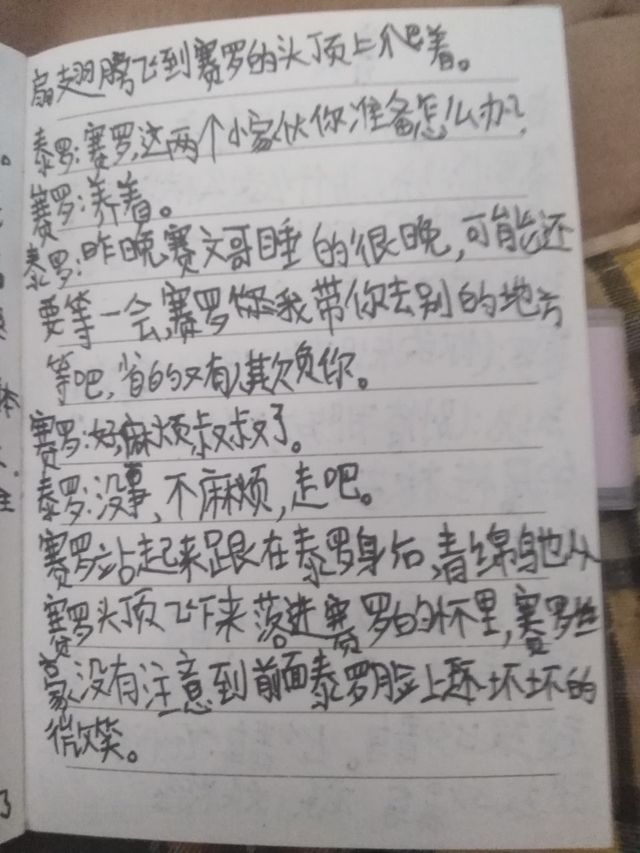 扇翅膀飞到赛罗的头顶上趴着。
泰罗:赛罗,这两个小家伙你准备怎么办?
赛罗:养着。
泰罗:昨晚赛文哥睡的很晚,可能还
要等一会,赛罗你我带你去别的地方
等吧,省的又有人欺负你。
赛罗:好,麻烦叔叔了。
泰罗:没事,不麻烦,走吧。
赛罗站起来跟在泰罗身后,青绵鸟也从
赛罗头顶飞下来落进赛罗的怀里,赛罗
没有注意到前面泰罗脸上坏坏的
微笑。